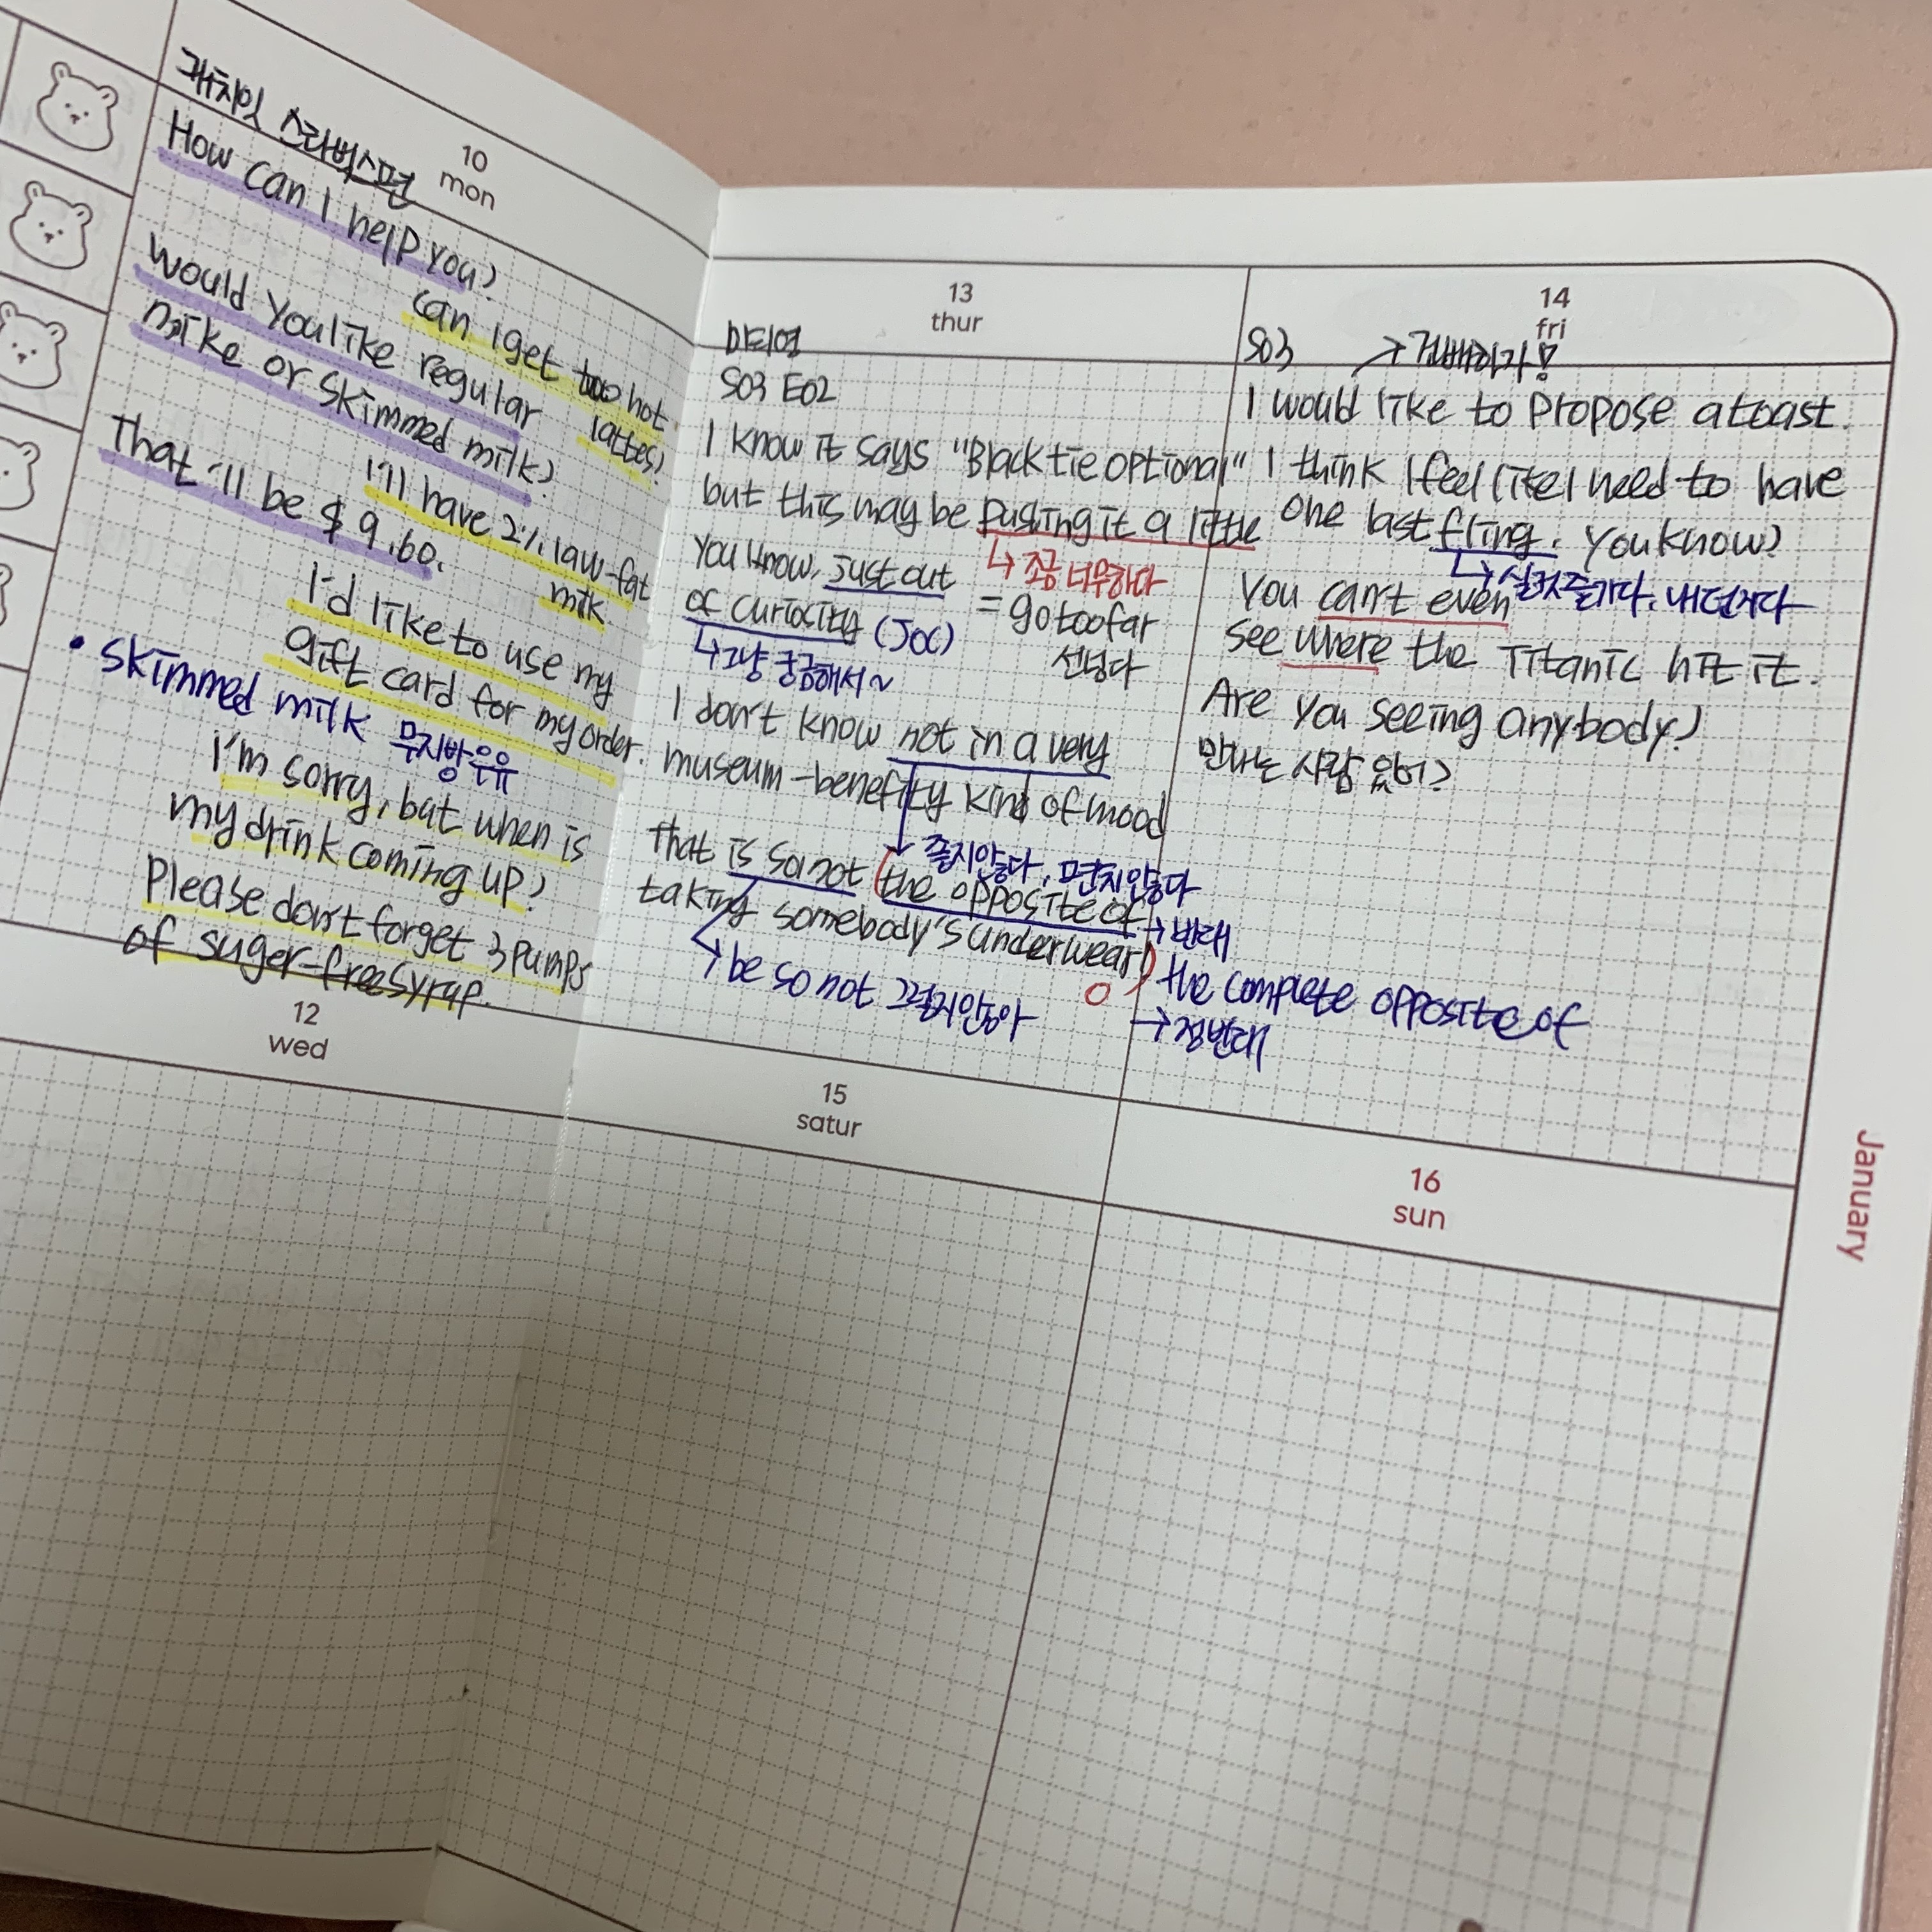 10
mon
캐치잇 스타벅스편
How can I help you?
can I get two hot
lattes?
Would You like regular
milke or skimmed milk?
I'll have 2% law-fat
milk
That'll be $9.60.
I'd like to use my
gift card for my order.
• skimmed milk 무지방우유
I'm sorry, but when is
my drink coming up?
Please don't forget 3 pumps
of suger-free syrup.
12
wed
13
thur
마티영
S03 E02
I know it says "Black tie optional"
but this may be pushing it a little
↳ 조금 너무하다
= go too far
선넘다
You know, just out
of curiocity (JOC)
↳ 그냥 궁금해서~
I don't know not in a very
museum-benefity kind of mood
즐기지않다, 땡기지않다
That is so not (the opposite of
→ 반대
taking somebody's underwear)
↳ be so not 그렇지않아
the complete opposite of
→ 정반대
14
fri
S03
→ 건배하자!
I would like to propose a toast.
I think I feel like I need to have
one last fling. You know?
↳ 실컷즐기다, 내던지다
You can't even
see where the Titanic hit it.
Are you seeing anybody?
만나는 사람 있어?
15
satur
16
sun
January